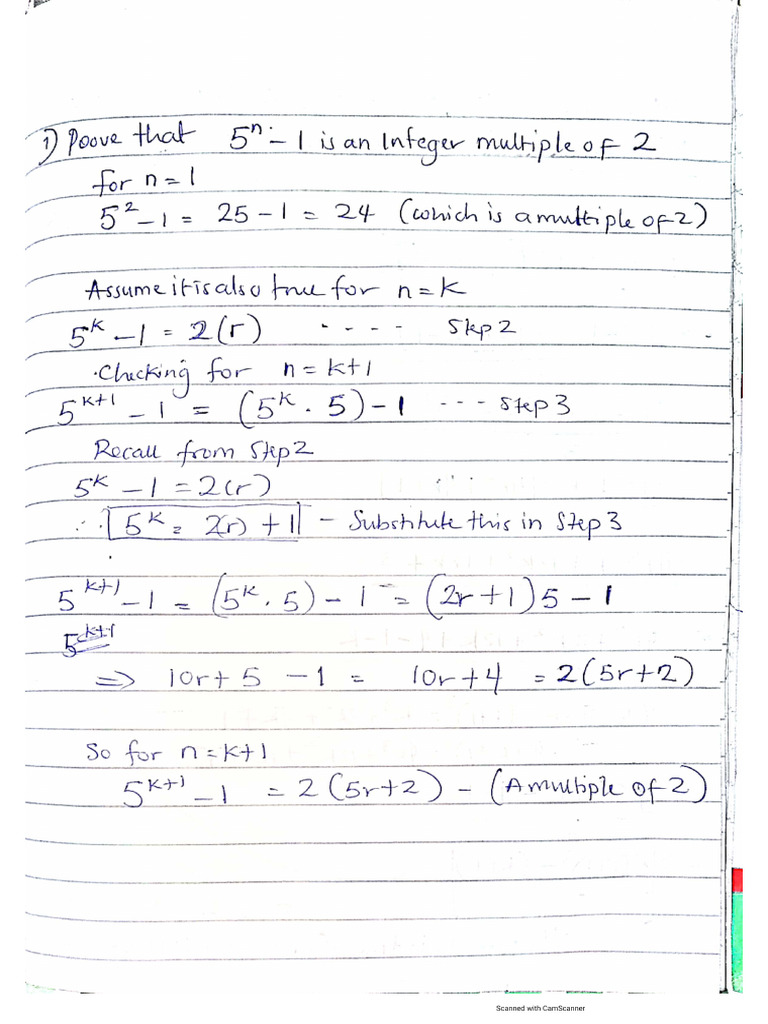 1) Proove that 5ⁿ - 1 is an Integer multiple of 2
for n = 1
5² - 1 = 25 - 1 = 24 (which is a multiple of 2)
Assume it is also true for n = k
5ᵏ - 1 = 2(r) - - - - Step 2
Checking for n = k+1
5ᵏ⁺¹ - 1 = (5ᵏ . 5) - 1 - - - Step 3
Recall from Step 2
5ᵏ - 1 = 2(r)
∴ 5ᵏ = 2(r) + 1 - Substitute this in Step 3
5ᵏ⁺¹ - 1 = (5ᵏ . 5) - 1 = (2r + 1) 5 - 1
5ᵏ⁺¹
⇒ 10r + 5 - 1 = 10r + 4 = 2(5r+2)
So for n = k+1
5ᵏ⁺¹ - 1 = 2(5r+2) - (A multiple of 2)
Scanned with CamScanner